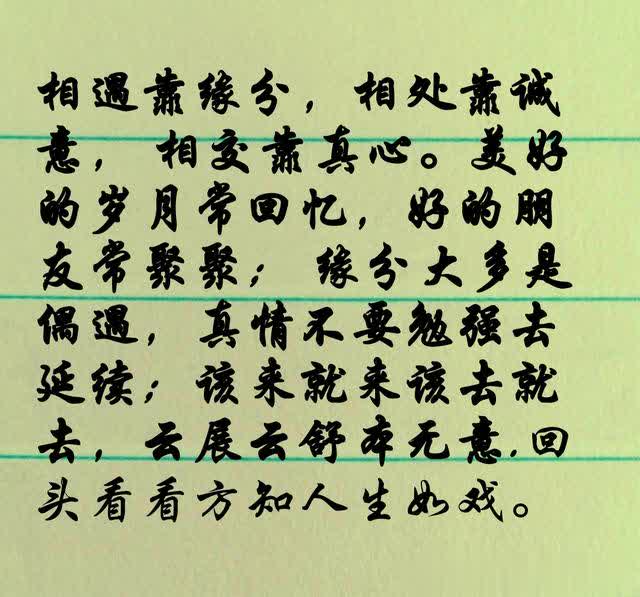 相遇靠缘分，相处靠诚
意，相交靠真心。美好
的岁月常回忆，好的朋
友常聚聚；缘分大多是
偶遇，真情不要勉强去
延续；该来就来该去就
去，云展云舒本无意,回
头看看方知人生如戏。